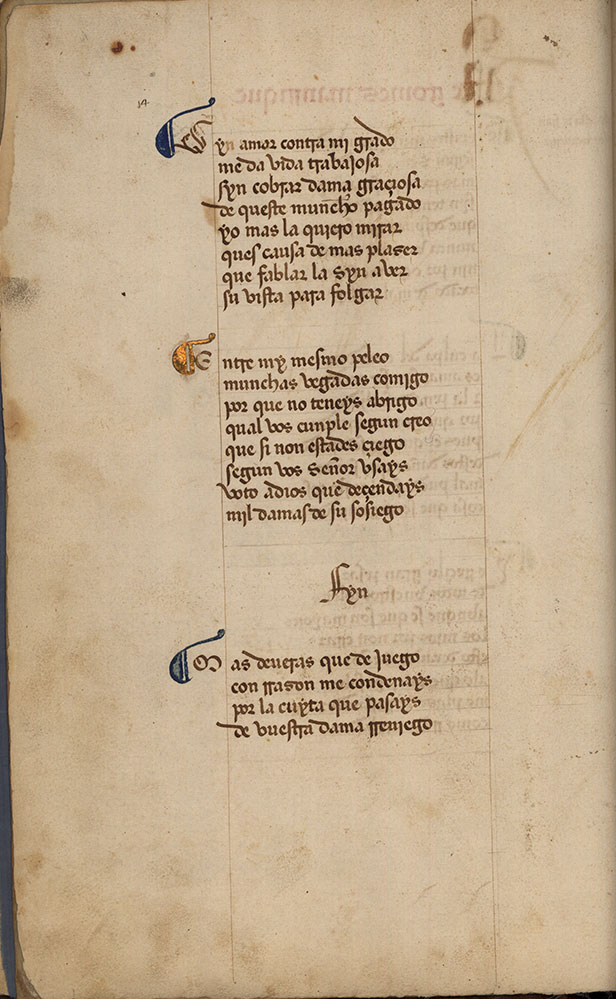 14
amor contra mi grado
me da vida trabajosa
syn cobrar dama graçiosa
de queste muncho pagado
yo mas la quiero mirar
ques causa de mas plazer
que fablar la syn aver
su vista para folgar
Entre my mesmo peleo
munchas vegadas comigo
por que no teneys abrigo
qual vos cunple segun creo
que si non estades çiego
segun vos señor vsays
voto adios que deçendays
mil damas de su sosiego
Fyn
Mas deveras que de juego
con rrazon me condenays
por la cuyta que pasays
de vuestra dama rreniego